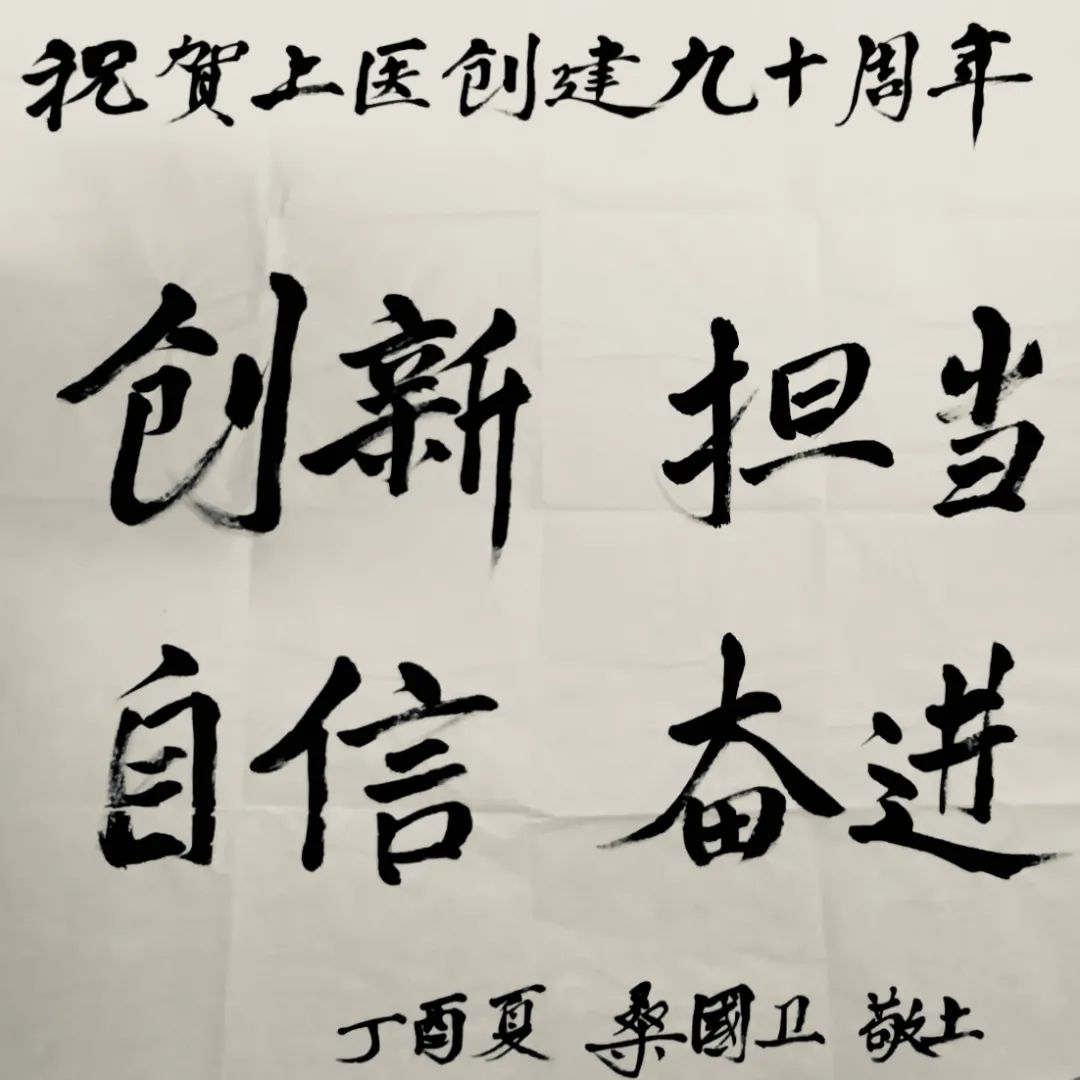 祝賀上医创建九十周年
创新 担当
自信 奋进
丁酉夏 桑國卫 敬上